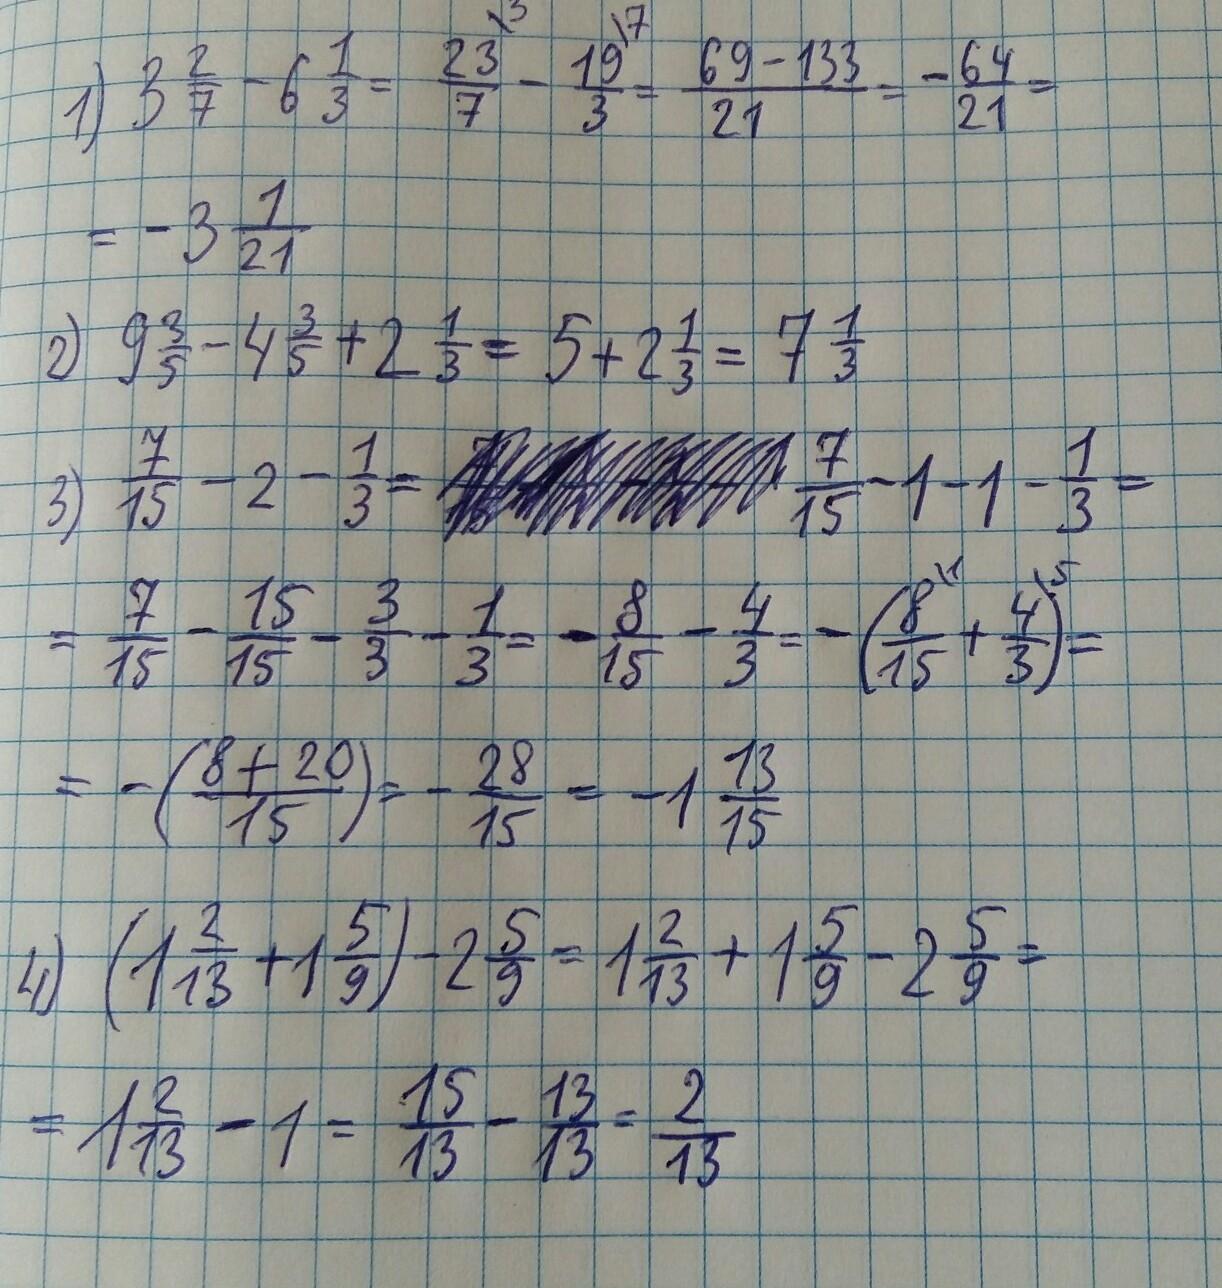 1) 3 2/7 - 6 1/3 = 23\3/7 - 19\7/3 = 69-133/21 = -64/21 =
= -3 1/21
2) 9 3/5 - 4 3/5 + 2 1/3 = 5 + 2 1/3 = 7 1/3
3) 7/15 - 2 - 1/3 = 7/15 - 1 - 1 - 1/3 =
= 7/15 - 15/15 - 3/3 - 1/3 = -8/15 - 4/3 = -(8\1/15 + 4\5/3) =
= -(8+20/15) = -28/15 = -1 13/15
4) (1 2/13 + 1 5/9) - 2 5/9 = 1 2/13 + 1 5/9 - 2 5/9 =
= 1 2/13 - 1 = 15/13 - 13/13 = 2/13